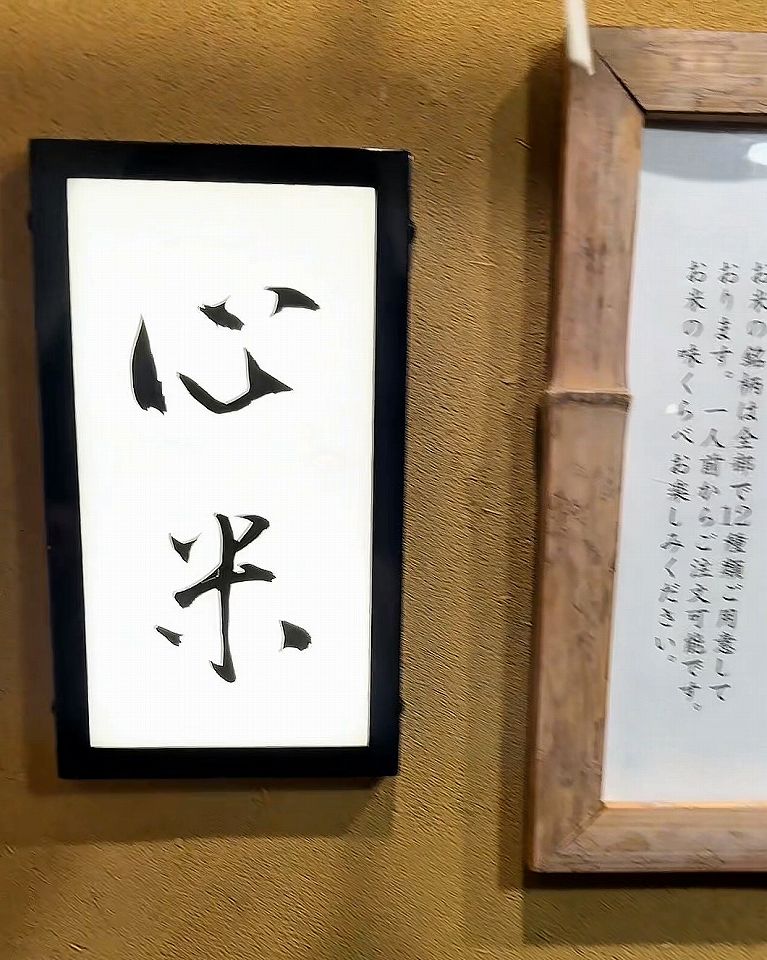 心米
お米の銘柄は全部で12種類ご用意して
おります。一人前からご注文可能です。
お米の味くらべお楽しみください。